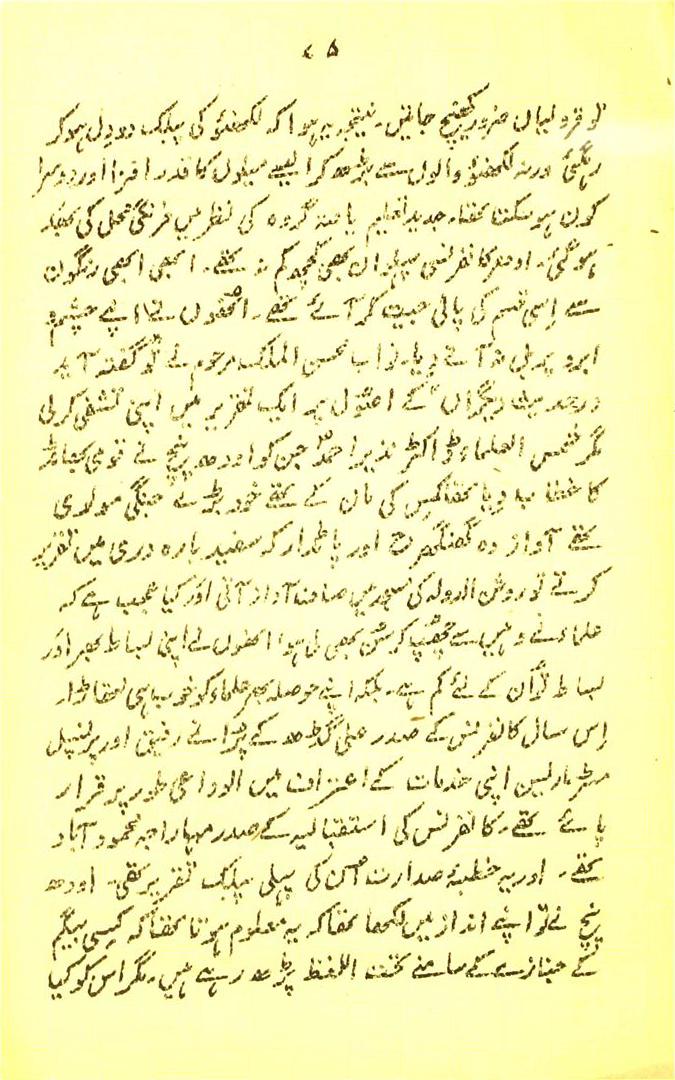 ۷۵
تو قرولیاں ضرور کھنچ جاتیں۔ نتیجہ یہ ہوا کہ لکھنؤ کی پبلک دو دِل ہو کر
رہگئی ورنہ لکھنؤ والوں سے بڑھ کر ایسے میلوں کا قدر افزا اور دوسرا
کون ہو سکتا تھا۔ جدید تعلیم یافتہ گروہ کی نظر میں فرنگی محل کی
ہوگئی۔ اودھر کانفرنسی پہلوان بھی کچھ کم نہ تھے۔ ابھی ابھی رنگون
سے اِسی قسم کی پالی جیت کر آئے تھے۔ اُنھوں نے اپنے چشم و
ابرو پر بل نہ آنے دیا۔ نواب محسن الملک مرحوم نے تو گفتہ آید
درحدیث دیگراں" کے اصول پر ایک تقریر میں اپنی تشفی کرلی
مگر شمس العلماء ڈاکٹر نذیر احمدؒ جن کو اودھ پنچ نے قومی بھانڈ
کا خطاب دیا تھا کِس کی مان تے تھے خود بڑے جنگی مولوی
تھے آواز وہ گھنگھرج اور پاٹدار کہ سفید بارہ دری میں تقریر
کرتے تو روشن الدولہ کی مسجد میں صاف آواز آتی اور کیا عجیب ہے کہ
علماء نے وہیں سے چھپ کر سُن بھی لی ہو! انھوں نے اپنی بساط بھر اور
بساط تو اُن کے لئے کم ہے۔ بلکہ اپنے حوصلہ بھر علماء کو خوب ہی لتھاڑا۔
اِس سال کانفرنس کے صدر علی گڑھ کے پُرانے رفیق اور پرنسپل
مسٹر ماریسن اپنی خدمات کے اعتراف میں الوداعی طور پر قرار
پائے تھے۔ کانفرنس کی استقبالیہ کے صدر مہاراجہ محمود آباد
تھے۔ اور یہ خطبۂ صدارت اُن کی پہلی پبلک تقریر تھی۔ اودھ
پنچ نے تو اپنے انداز میں لکھا تھا کہ یہ معلوم ہوتا تھا کہ کِسی بیگم
کے جنازے کے سامنے تحت اللفظ پڑھ رہے ہیں۔ مگر اس کو کیا